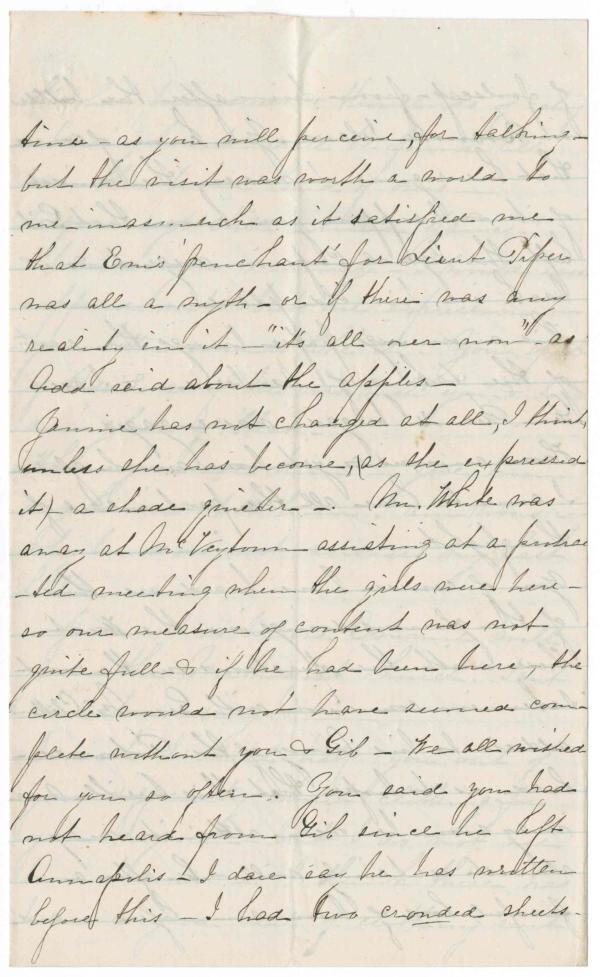 time - as you will perceive, for talking -
but the visit was worth a world to
me - inasmuch as it satisfied me
that Em's 'penchant' for Lieut Piper
was all a myth - or if there was any
reality in it - "it's all over now" - as
Add said about the apples -
Jannie has not changed at all, I think,
unless she has become, (as she expressed
it) - a shade quieter - . Mr. White was
away at McVeytown assisting at a protrac
-ted meeting when the girls were here -
so our measure of content was not
quite full - & if he had been here, the
circle would not have seemed com-
plete without you & Gib - We all wished
for you so often. You said you had
not heard from Gib since he left
Annapolis - I dare say he has written
before this - I had two crowded sheets -